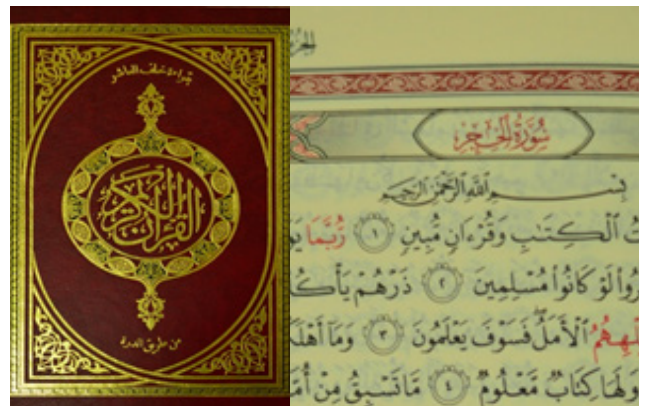 بقراءة خلف العاشر
القرآن الكريم
من طريق الدرة
سُورَةُ الحِجْرِ
بِسْمِ ٱللَّهِ ٱلرَّحْمَٰنِ ٱلرَّحِيمِ
ٱلْكِتَٰبِ وَقُرْءَانٍ مُّبِينٍ ١ رُّبَّمَا
لَوْ كَانُوا۟ مُسْلِمِينَ ٢ ذَرْهُمْ
ٱلْأَمَلُ فَسَوْفَ يَعْلَمُونَ ٣ وَمَآ
وَلَهَا كِتَابٌ مَّعْلُومٌ ٤ مَّا تَسْبِقُ مِنْ